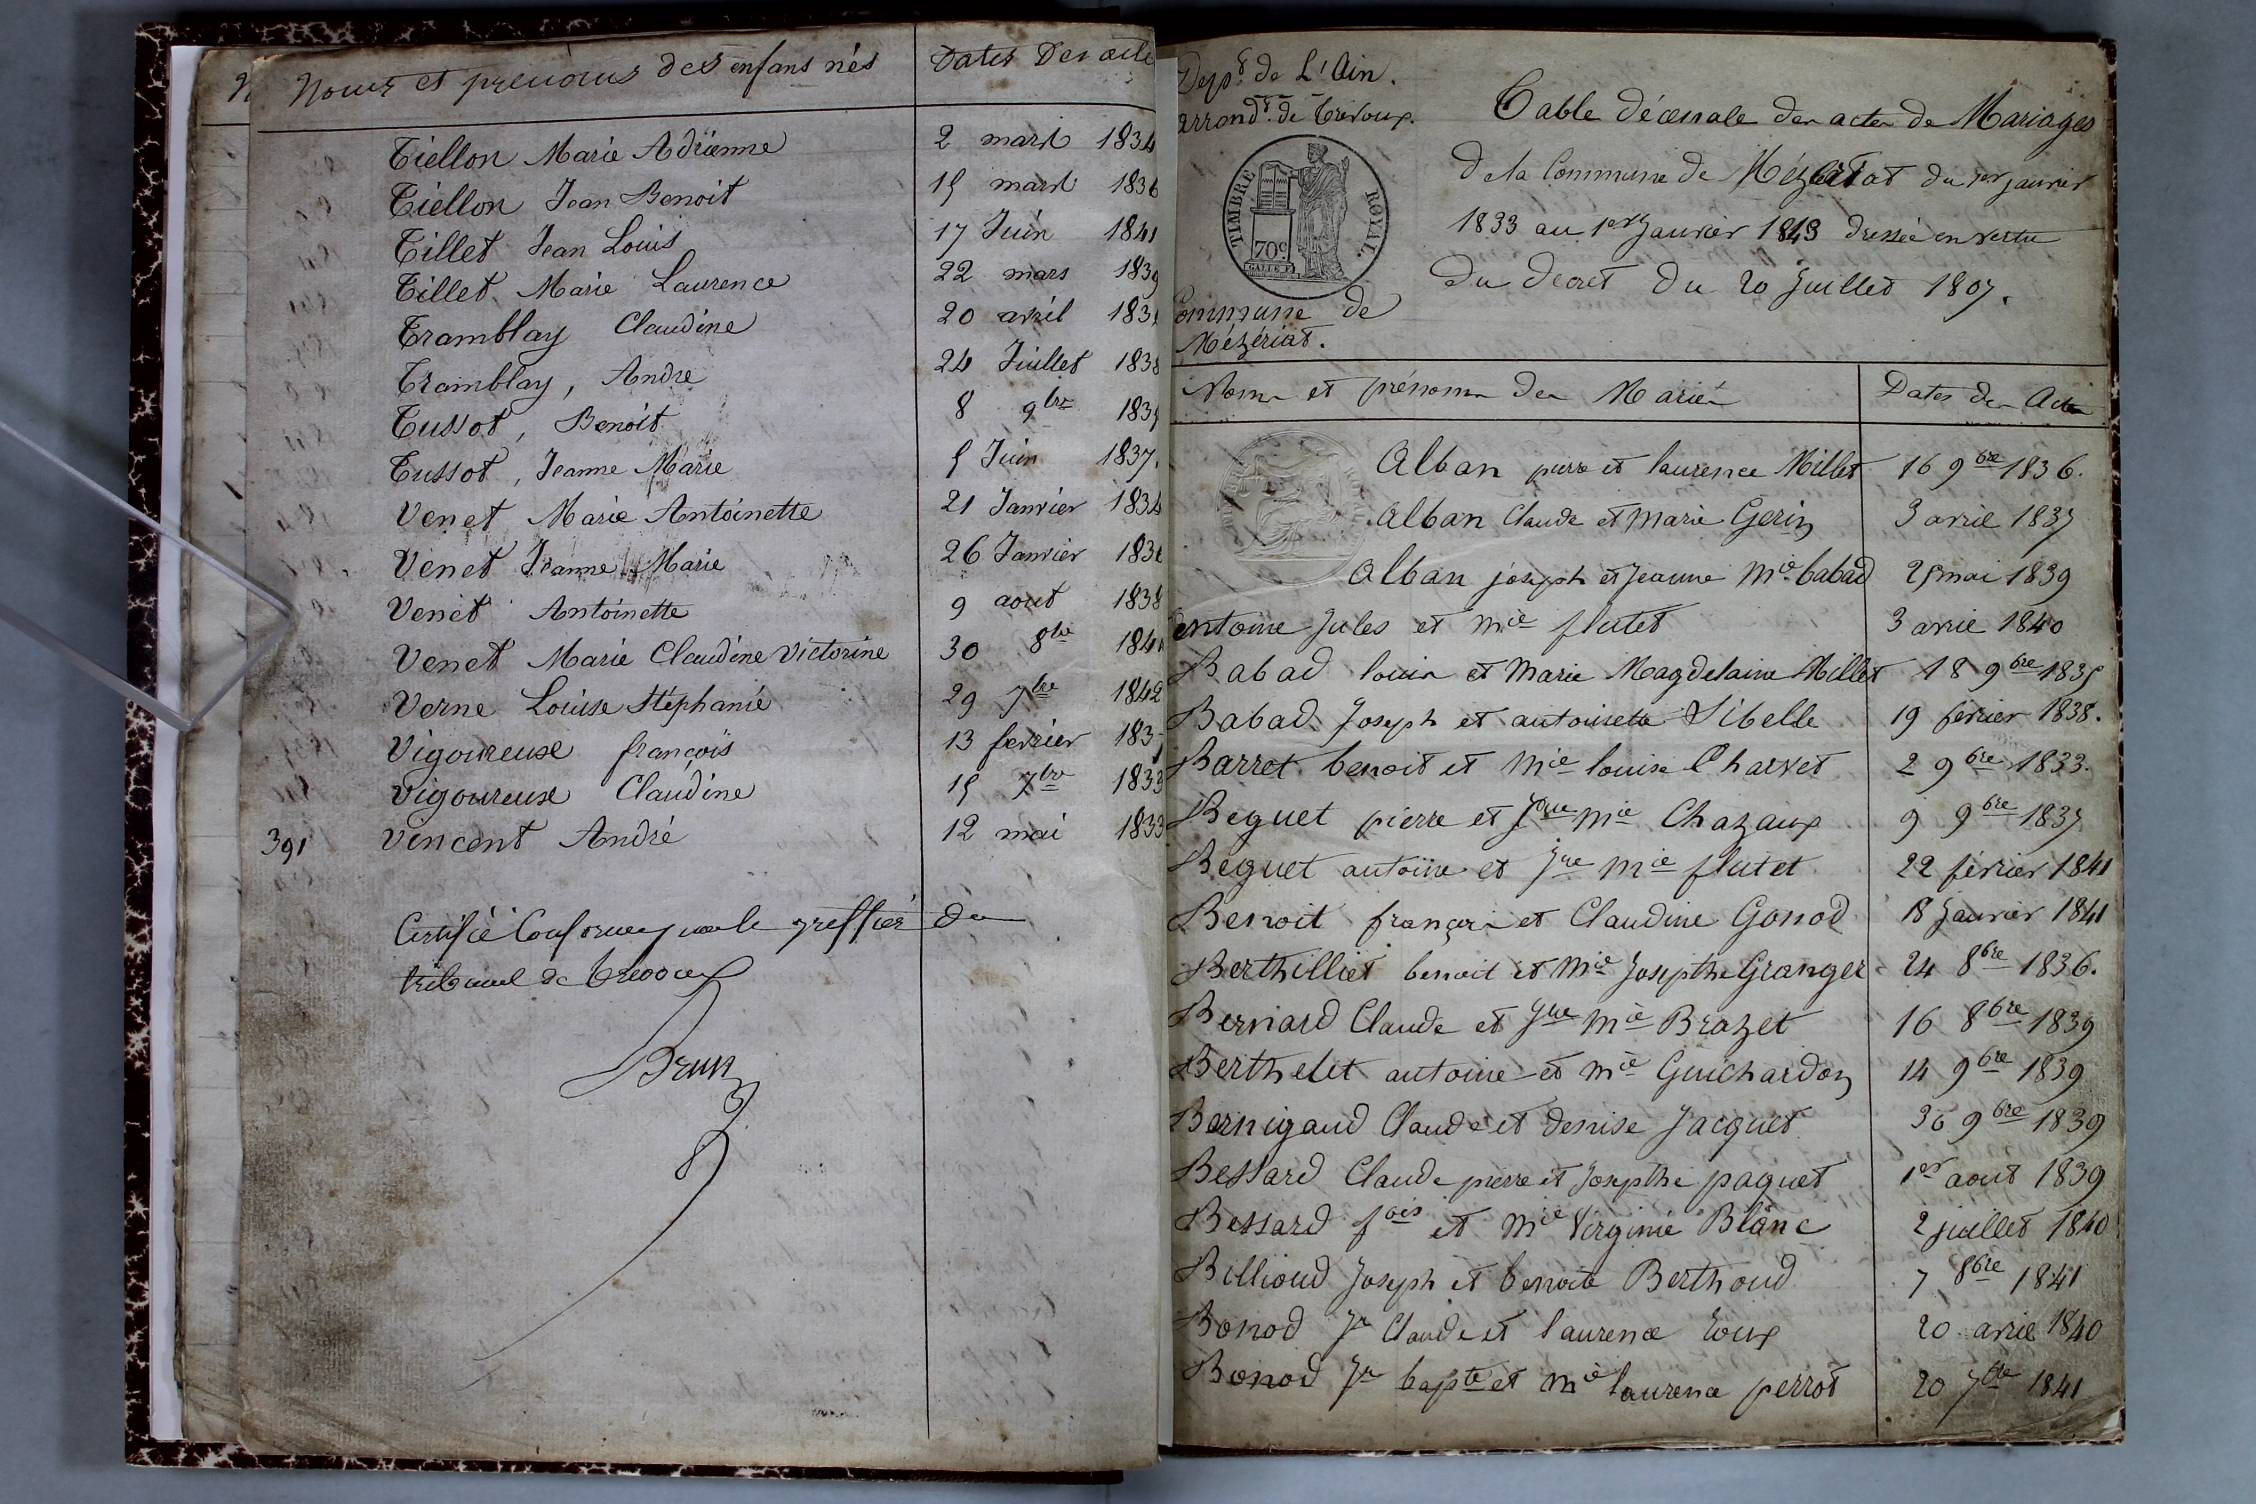 Noms et prénoms des enfans nés Dates Des acte
Tiellon Marie Adrienne 2 mars 1834
Tiellon Jean Benoit 15 mars 1836
Tillet Jean Louis 17 Juin 1841
Tillet Marie Laurence 22 mars 1839
Tramblay Claudine 20 avril 183
Tramblay, Andre 24 Juillet 1838
Tussot, Benoit 8 9bre 183
Tussot, Jeanne Marie 5 Juin 1837.
Venet Marie Antoinette 21 Janvier 1834
Venet Jeanne Marie 26 Janvier 183
Venet Antoinette 9 aout 1838
Venet Marie Claudine Victorine 30 8bre 184
Verne Louise Stéphanie 29 7bre 1842
Vigoureuse françois 13 fevrier 183
Vigoureuse Claudine 15 7bre 1833
391 Vincent André 12 mai 1833
Certifié Conforme par le greffier du
tribunal de Trevoux
Brun
Dept. de L'Ain.
arrondt. de trevoux.
TIMBRE ROYAL.
70c.
Commune de
Mézériat.
Table décennale des actes de Mariages
de la Commune de Mézériat du 1er janvier
1833 au 1er Janvier 1843 dressée en vertu
du decret du 20 Juillet 1807.
Noms et prénoms des Mariés Dates des Actes
Alban pierre et laurence Millet 16 9bre 1836.
Alban Claude et Marie Gerin 3 avril 1837
Alban joseph et Jeanne Mie babad 25 mai 1839
antoine Jules et Mie flutet 3 avril 1840
Babad louis et Marie Magdelaine Millet 18 9bre 1835
Babad Joseph et antoinette Sibelle 19 fevrier 1838.
Barret benoit et Mie louise Charvet 2 9bre 1833.
Beguet pierre et Jne Mie Chazaux 9 9bre 1837
Beguet antoine et Jne Mie flutet 22 février 1841
Benoit françois et Claudine Gonod 18 Janvier 1841
Berthilliet benoit et Mie Josepthe Granger 24 8bre 1836.
Bernard Claude et Jne Mie Brazet 16 8bre 1839
Berthelet antoine et Mie Guichardon 14 9bre 1839
Bernigaud Claude et denise Jacquet 30 9bre 1839
Bessard Claude pierre et Josepthe paquet 1er aout 1839
Bessard fois et Mie Virginie Blanc 2 juillet 1840
Billioud Joseph et benoite Berthoud 7 8bre 1841
Bonod Jn Claude et laurence roux 20 avril 1840
Bonod Jn bapte et Mie laurence perrot 20 7bre 1841